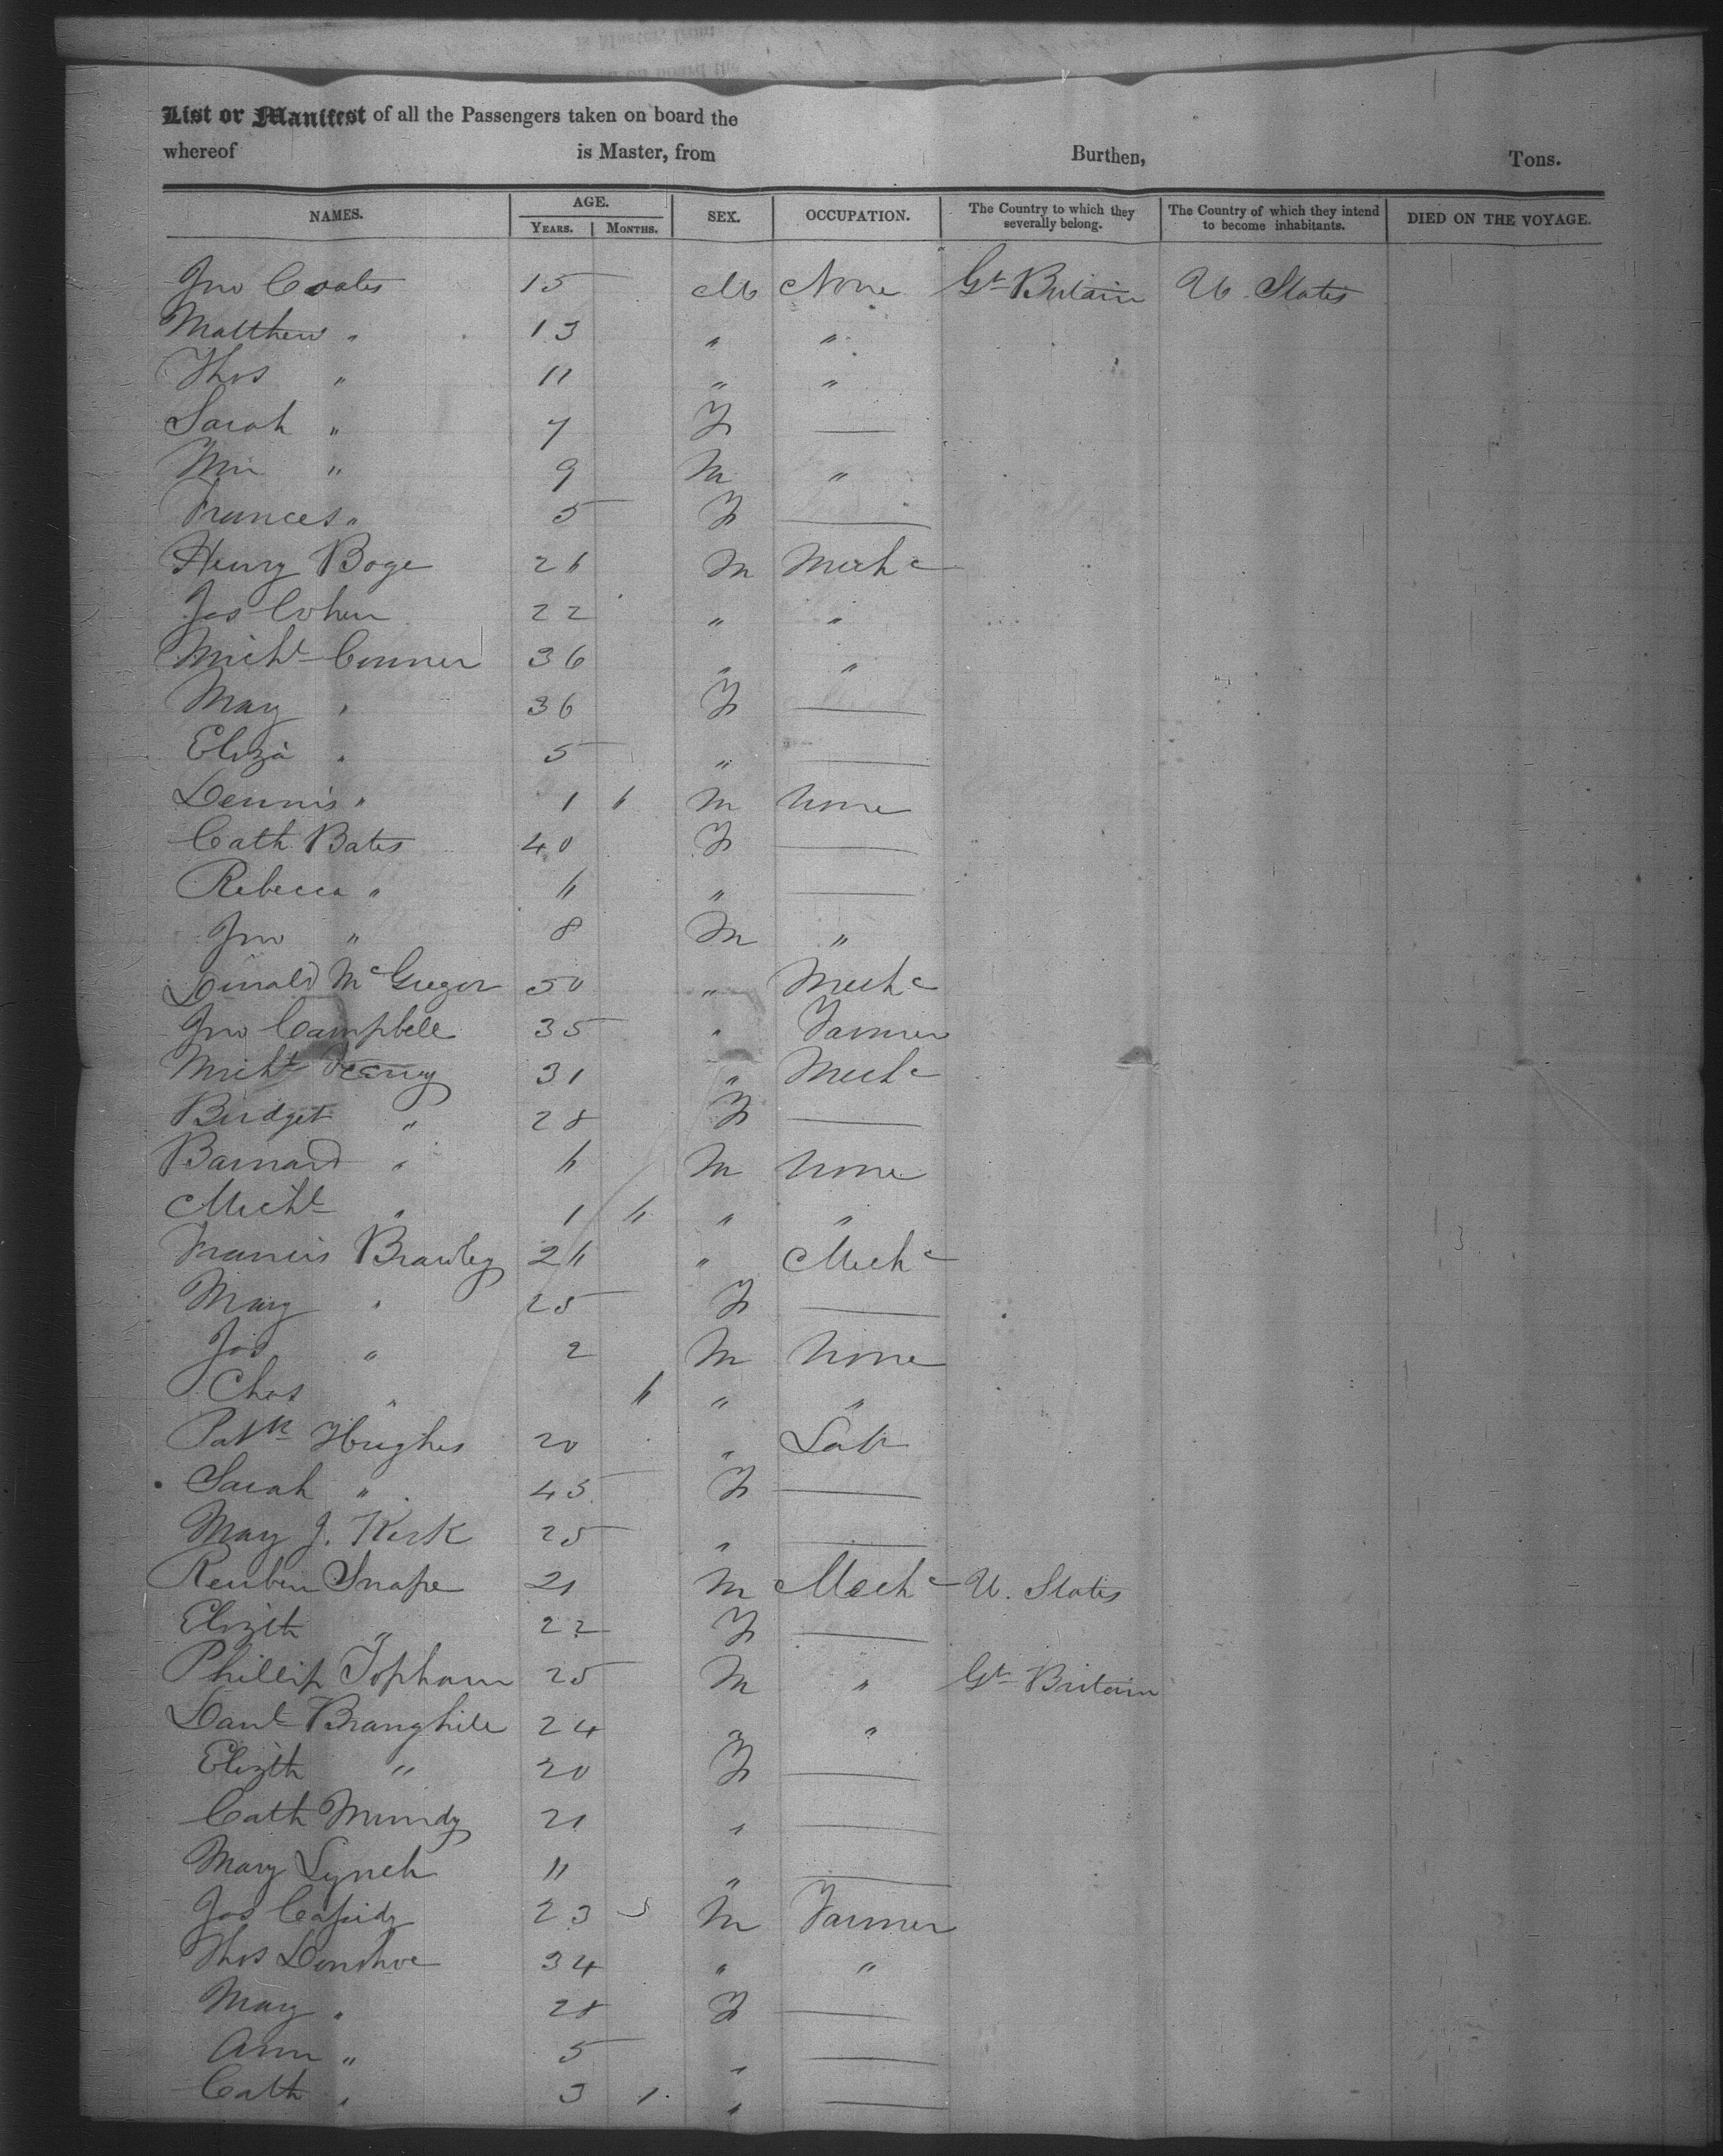 List or Manifest of all the Passengers taken on board the
whereof is Master, from Burthen, Tons.
NAMES. AGE. SEX. OCCUPATION. The Country to which they severally belong. The Country of which they intend to become inhabitants. DIED ON THE VOYAGE.
YEARS. MONTHS.
Jno Coates 15 M None Gt Britain U. States
Matthew " 13 " "
Thos " 11 " "
Sarah " 7 F —
Wm " 9 M "
Frances " 5 F —
Henry Boge 26 M Mechc
Jos Cohen 22 " "
Michl Conner 36 " "
Mary " 36 F —
Eliza " 5 " —
Dennis " 1 6 M None
Cath Bates 40 F —
Rebecca " 6 " —
Jno " 8 M "
Donald McGregor 50 " Mechc
Jno Campbell 35 " Farmer
Michl 31 " Mechc
Bridget " 28 F —
Barnard " 6 M None
Michl " 1 6 " "
Francis Brawley 26 " Mechc
Mary " 25 F —
Jos " 2 M None
Chas " 6 " "
Patk Hughes 20 " Labr
Sarah " 45 F —
Mary J. Kirk 25 " —
Reuben Snape 21 M Mechc U. States
Elizth " 22 F —
Phillip Topham 25 M " Gt Britain
Danl Branghile 24 " "
Elizth " 20 F —
Cath Mundy 21 " —
Mary Lynch 11 " —
Jas Cassidy 23 M Farmer
Thos Donohoe 34 " "
Mary " 28 F —
Ann " 5 " —
Cath " 3 1 " —